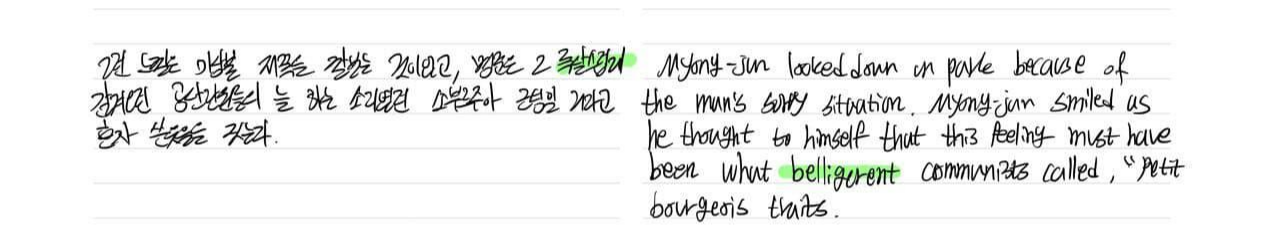 그건 저쪽을 깔보는 것이었고, 명준은 그
공산당원들의 늘 하는 소리였던 근성일 거라고
혼자 쓴웃음을 짓는다.
Myong-jun looked down on because of
the man's sorry situation. Myong-jun smiled as
he thought to himself that this feeling must have
been what belligerent communists called, "petit
bourgeois traits.